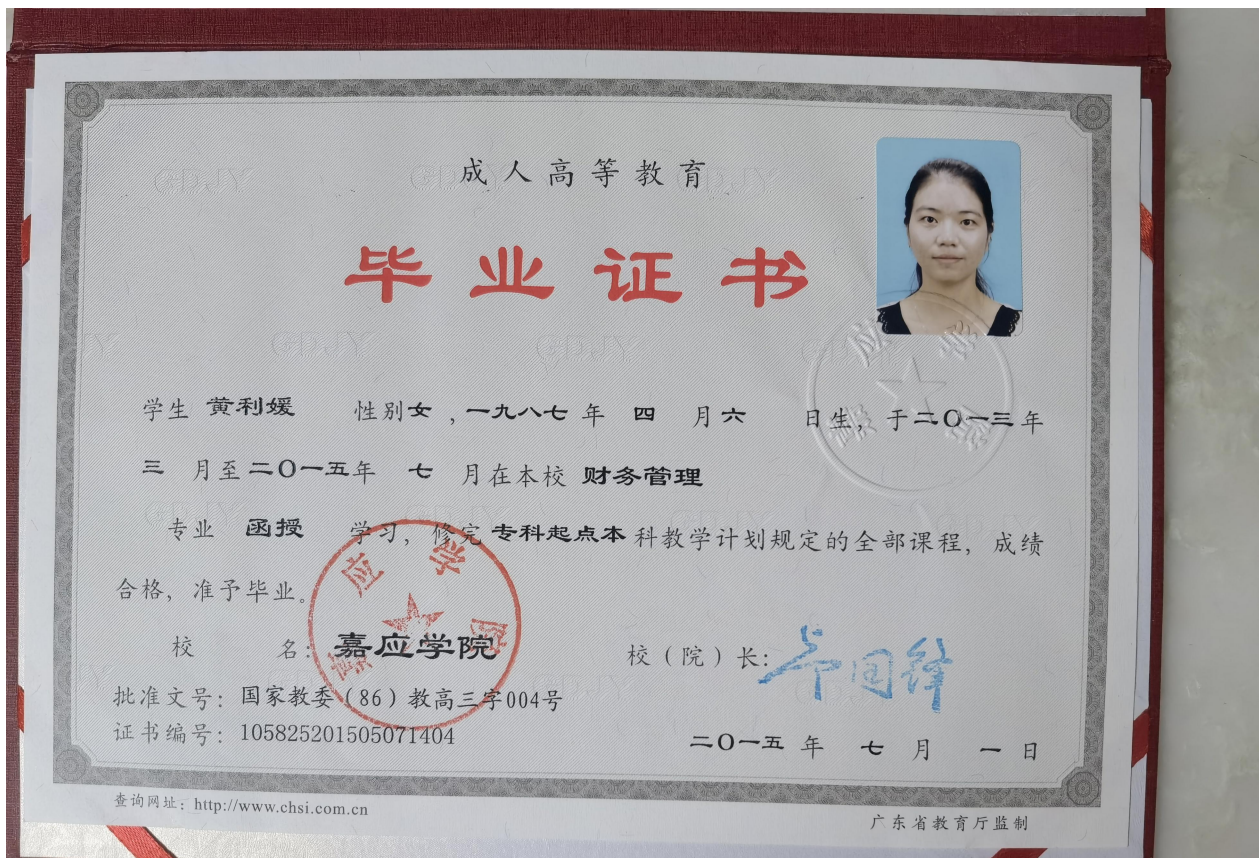 成人高等教育
毕业证书
学生 黄利媛 性别女 ,一九八七 年 四 月六 日生, 于二〇一三年
三 月至二〇一五年 七 月在本校 财务管理
专业 函授 学习, 修完 专科起点本 科教学计划规定的全部课程, 成绩
合格, 准予毕业。
校 名: 嘉应学院
校（院）长:
批准文号: 国家教委（86）教高三字004号
证书编号: 105825201505071404
二〇一五 年 七 月 一 日
查询网址: http://www.chsi.com.cn
广东省教育厅监制
嘉应学院
嘉应学院